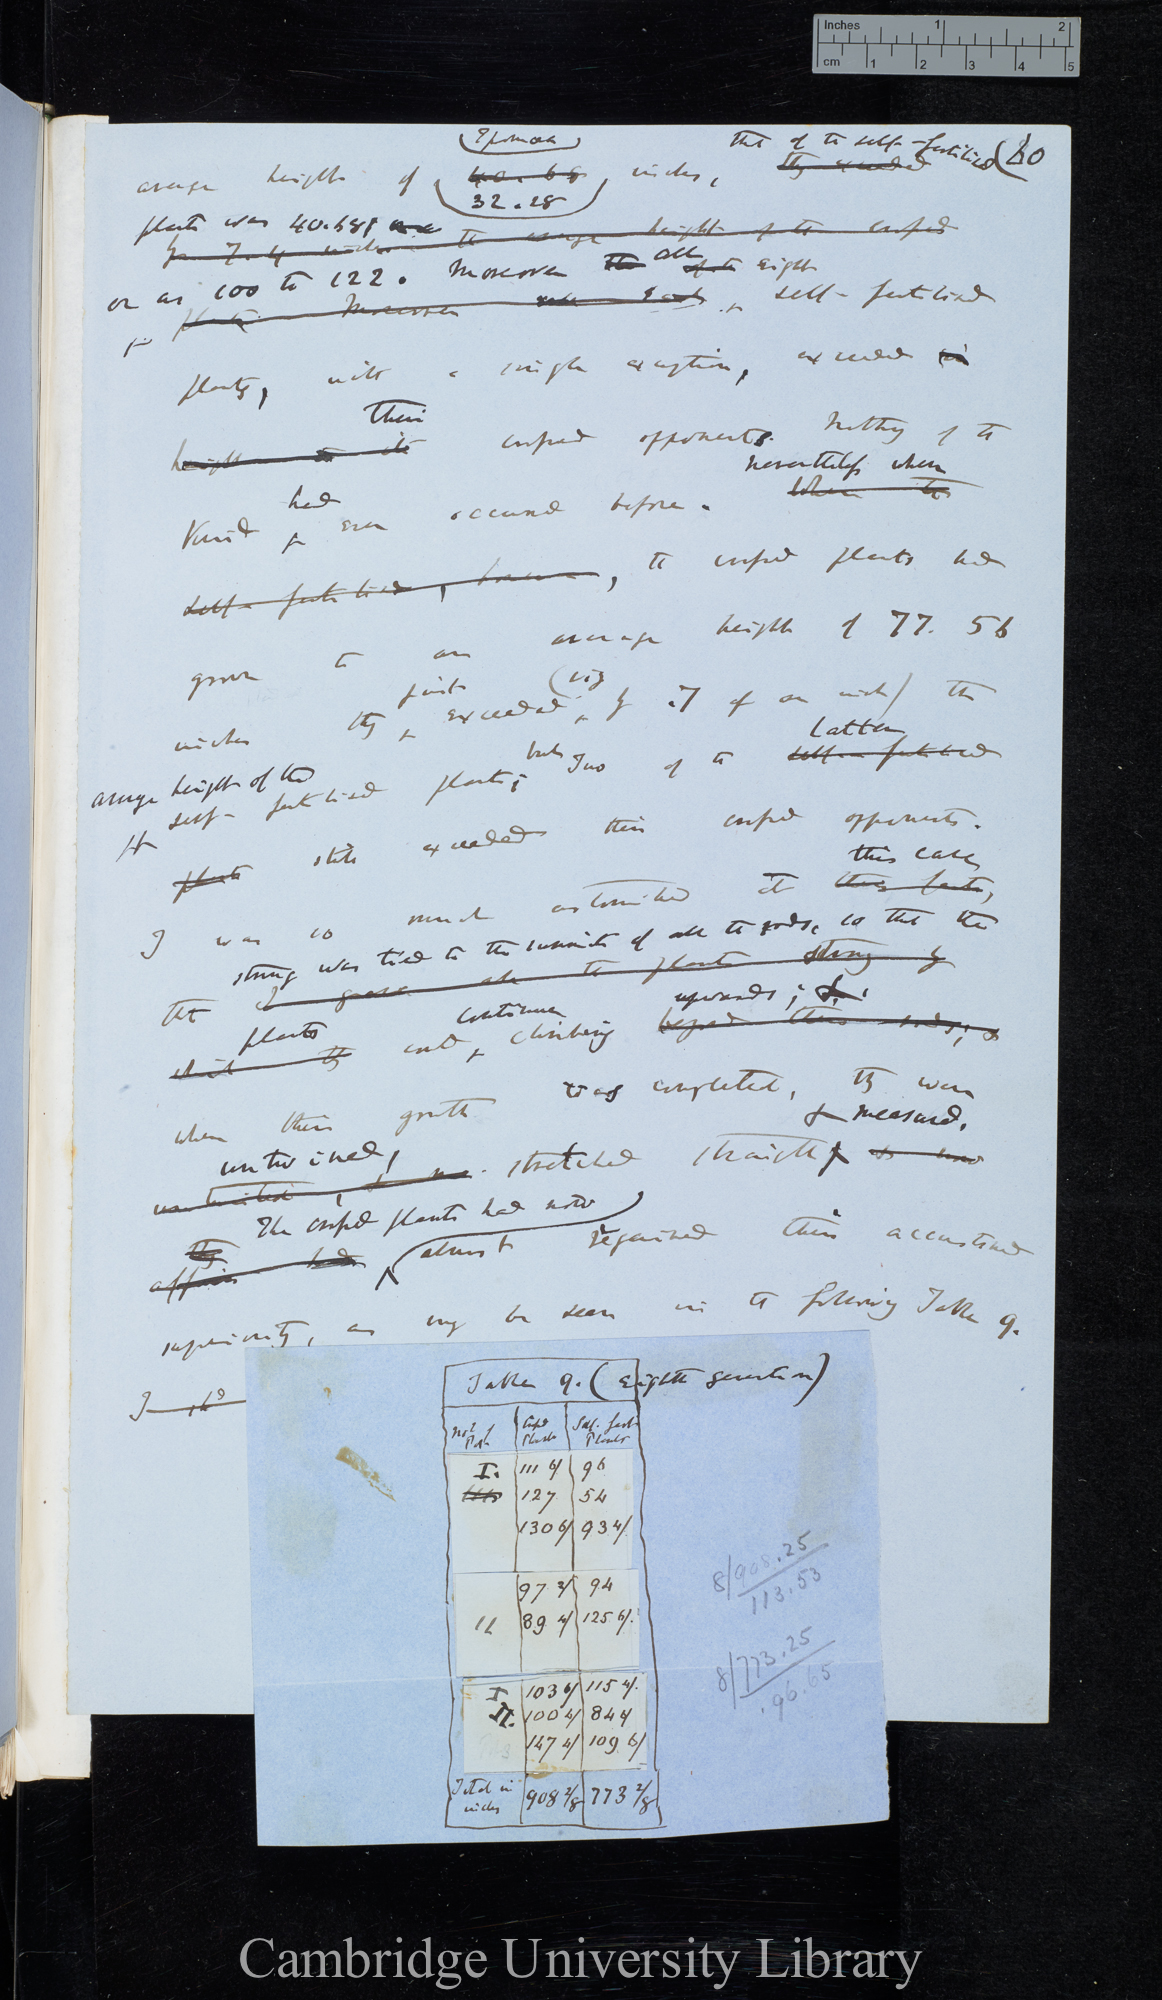 Inches 1 2
cm 1 2 3 4 5
(Ipomœa)
that of the self-fertilised (40
average height of 40.68 inches, they exceeded
32.28
plants was 40.68;
by 7.4 inches the average height of the crossed
or as 100 to 122. Moreover the all of the eight
plants. Moreover self-fertilised
plants, with a single exception, exceeded in
their
height to its crossed opponents. Nothing of the
nevertheless when
kind had ever occurred before. When the
self-fertilised, however, the crossed plants had
grown to an average height of 77.56
just (viz
inches they exceeded by .7 of an inch) the
latter
average height of the
self-fertilised plants; but Two of the self-fertilised
plants still exceeded their crossed opponents.
this case,
I was so much astonished at these facts,
string was tied to the summits of all the rods, so that the
that I grew all the plants string by
plants continue upwards; &
which they could climbing beyond their rods; &
when their growth was completed, they were
& measured.
untwined,
stretched straight
The crossed plants had now
they
affair had almost regained their accustomed
superiority, as may be seen in the following Table 9.
Table 9. (Eighth generation)
No. of Pots Crossed Plants Self-fert Plants
I. 111 6/ 96
127 54
130 6/ 93 4/
97 2/ 94
II 89 4/ 125 6/
I 103 6/ 115 4/
II. 100 4/ 84 4/
147 4/ 109 6/
Total in inches 908 2/8 773 2/8
8/908.25
113.53
8/773.25
.96.65
Cambridge University Library